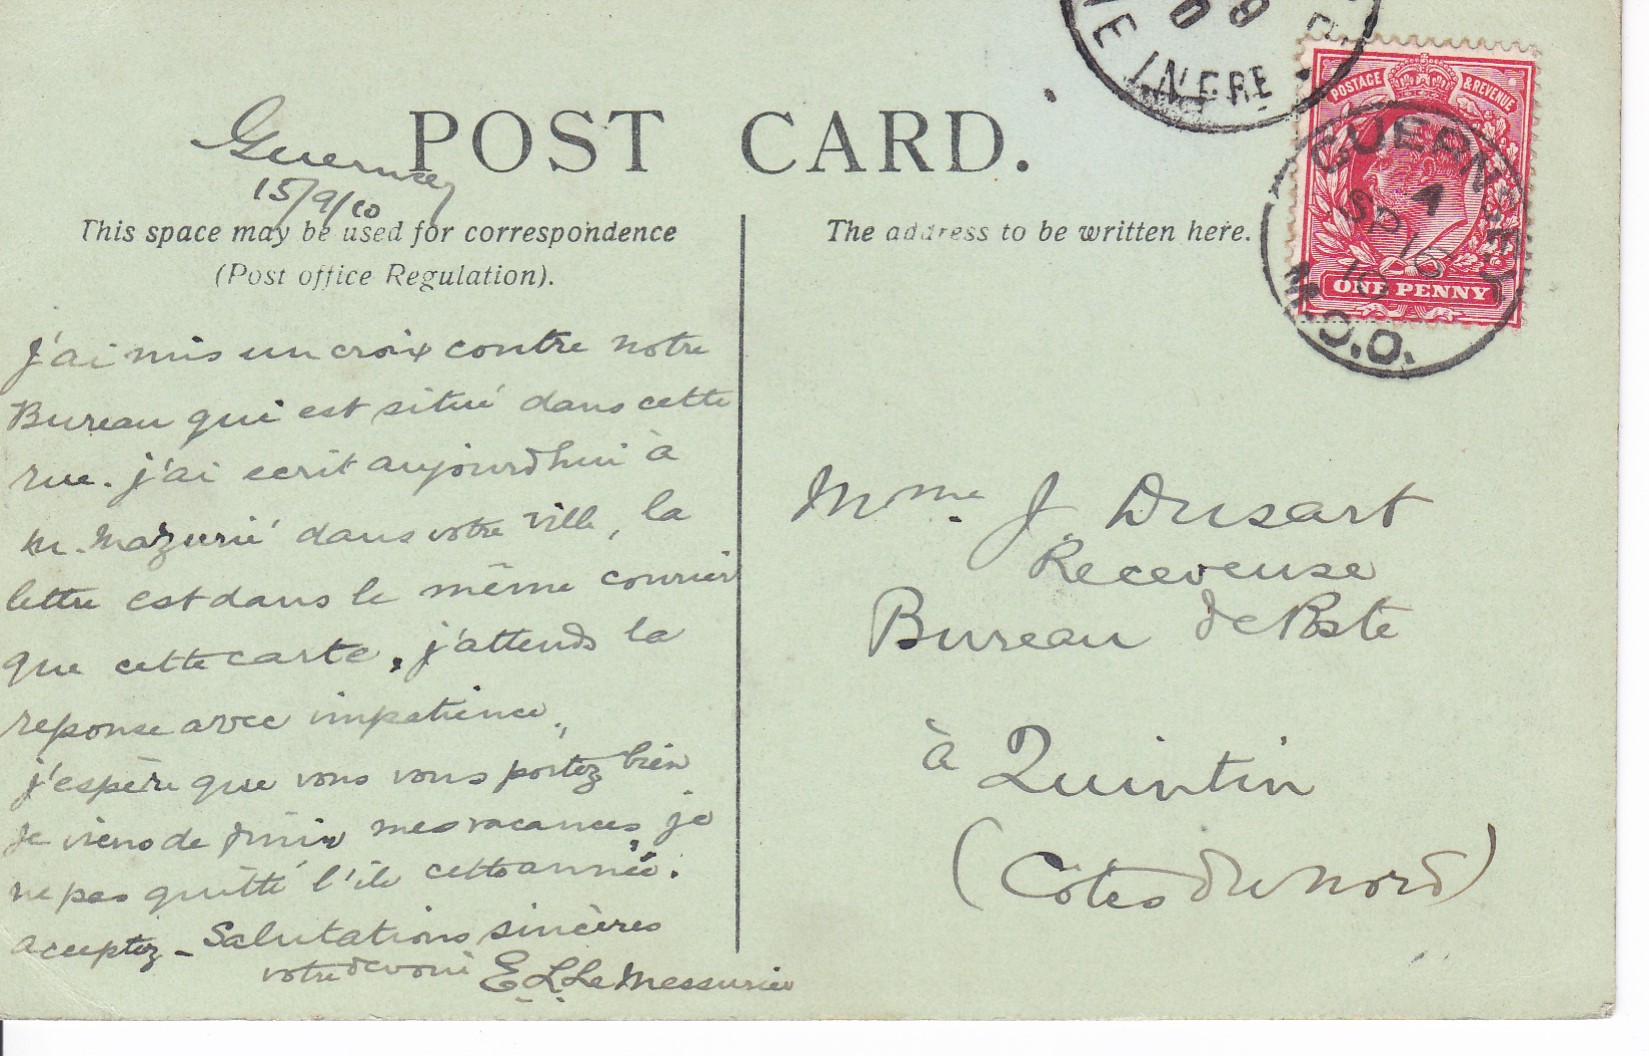 POST CARD.
Guernsey
15/9/10
This space may be used for correspondence
(Post office Regulation).
The address to be written here.
POSTAGE & REVENUE
ONE PENNY
GUERNSEY
A
SP 16
10
M.O.O.
j'ai mis un croix contre notre
Bureau qui est situé dans cette
rue. j'ai ecrit aujourdhui à
M. Mazurié dans votre ville, la
lettre est dans le même courrier
que cette carte, j'attends la
reponse avec impatience,
j'espère que vous vous portez bien
je viens de finir mes vacances, je
ne pas quitté l'ile cette année.
acceptez - Salutations sincères
votre devoué E. L. Le Messurier
Mme. J. Dusart
Receveuse
Bureau de Poste
à Quintin
(Côtes du Nord)